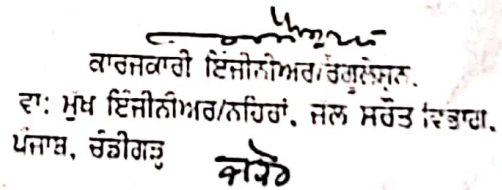 ਕਾਰਜਕਾਰੀ ਇੰਜੀਨੀਅਰ/ਰੈਗੂਲੇਸ਼ਨ.
ਵਾ: ਮੁੱਖ ਇੰਜੀਨੀਅਰ/ਨਹਿਰਾਂ, ਜਲ ਸਰੋਤ ਵਿਭਾਗ,
ਪੰਜਾਬ, ਚੰਡੀਗੜ੍ਹ